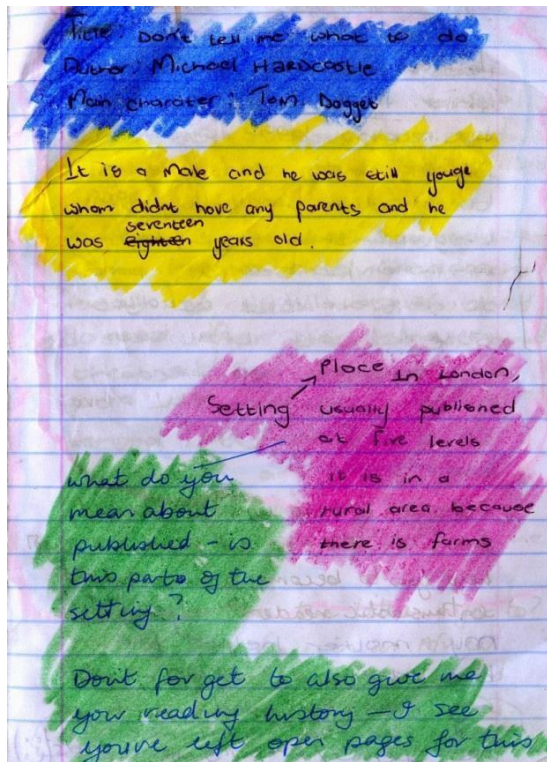 Title: Don't tell me what to do
Author: Michael Hardcastle
Main charater: Tom. Dogget
It is a male and he was still youge
whom didnt have any parents and he
seventeen
was eighteen years old.
Place In London,
Setting usually published
at five levels
it is in a
rural area because
there is farms
what do you
mean about
published - is
this parto of the
setting?
Don't forget to also give me
your reading history - I see
you've left open pages for this